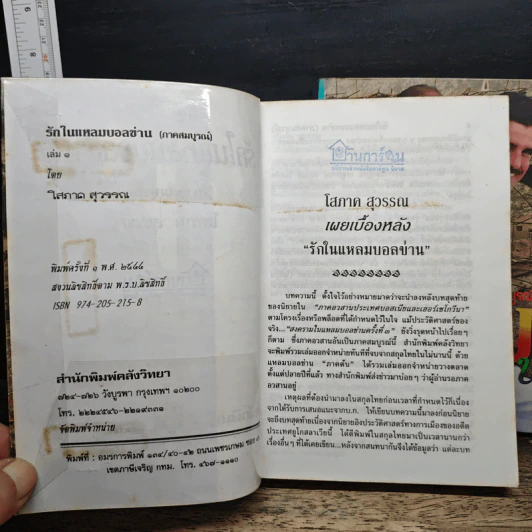 รักในแหลมบอลข่าน (ภาคสมบูรณ์)
เล่ม ๑
โดย
โสภาค สุวรรณ
พิมพ์ครั้งที่ ๑ พ.ศ. ๒๕๔๔
สงวนลิขสิทธิ์ตาม พ.ร.บ.ลิขสิทธิ์
ISBN 974-205-215-8
สำนักพิมพ์คลังวิทยา
๗๒๔-๗๒๖ วังบูรพา กรุงเทพฯ ๑๐๒๐๐
โทร. ๒๒๒๔๕๔๖-๒๒๑๙๓๓๑
จัดพิมพ์จำหน่าย
พิมพ์ที่ : อมรการพิมพ์ ๑๓๔/๔๐-๔๒ ถนนเพชรเกษม ซอย
เขตภาษีเจริญ กทม. โทร. ๔๖๗-๑๑๑๐
บ้านการ์ตูน
โสภาค สุวรรณ
เผยเบื้องหลัง
“รักในแหลมบอลข่าน”
บทความนี้ ตั้งใจไว้อย่างหมายมาดว่าจะนำลงหลังบทสุดท้าย
ของนิยายใน “ภาคอวสานประเทศบอสเนียและเฮอร์เซโกวีนา”
ตามโครงเรื่องหรือพล็อตที่ได้กำหนดไว้ในใจ แม้ประวัติศาสตร์ของ
จริง...“สงครามในแหลมบอลข่านครั้งที่ ๓” ยังวิ่งรุดหน้าไปเรื่อยๆ
ก็ตาม ซึ่งภาคอวสานอันเป็นภาคสมบูรณ์นี้ สำนักพิมพ์คลังวิทยา
จะพิมพ์รวมเล่มออกจำหน่ายทันทีที่จบจากสกุลไทยในไม่นานนี้ ด้วย
แหลมบอลข่าน “ภาคต้น” ได้รวมเล่มออกจำหน่ายวางตลาด
ตั้งแต่ปลายปีที่แล้ว ทางสำนักพิมพ์ส่งข่าวมาบ่อยๆ ว่าผู้อ่านรอภาค
อวสานอยู่
เหตุผลที่ต้องนำมาลงในสกุลไทยก่อนเวลาที่กำหนดไว้ก็เนื่อง
จากได้รับการเสนอแนะจากบ.ก. ให้เขียนบทความนี้มาลงก่อนนิยาย
จะถึงบทสุดท้ายเนื่องจากนิยายอิงประวัติศาสตร์ทางการเมืองของอดีต
ประเทศยูโกสลาเวียนี้ ได้ตีพิมพ์ในสกุลไทยมาเป็นเวลานานกว่า
เรื่องอื่นๆ ที่ได้เคยเขียน...หลังจากสนทนากันจึงได้ข้อมูลว่า แต่ละบท